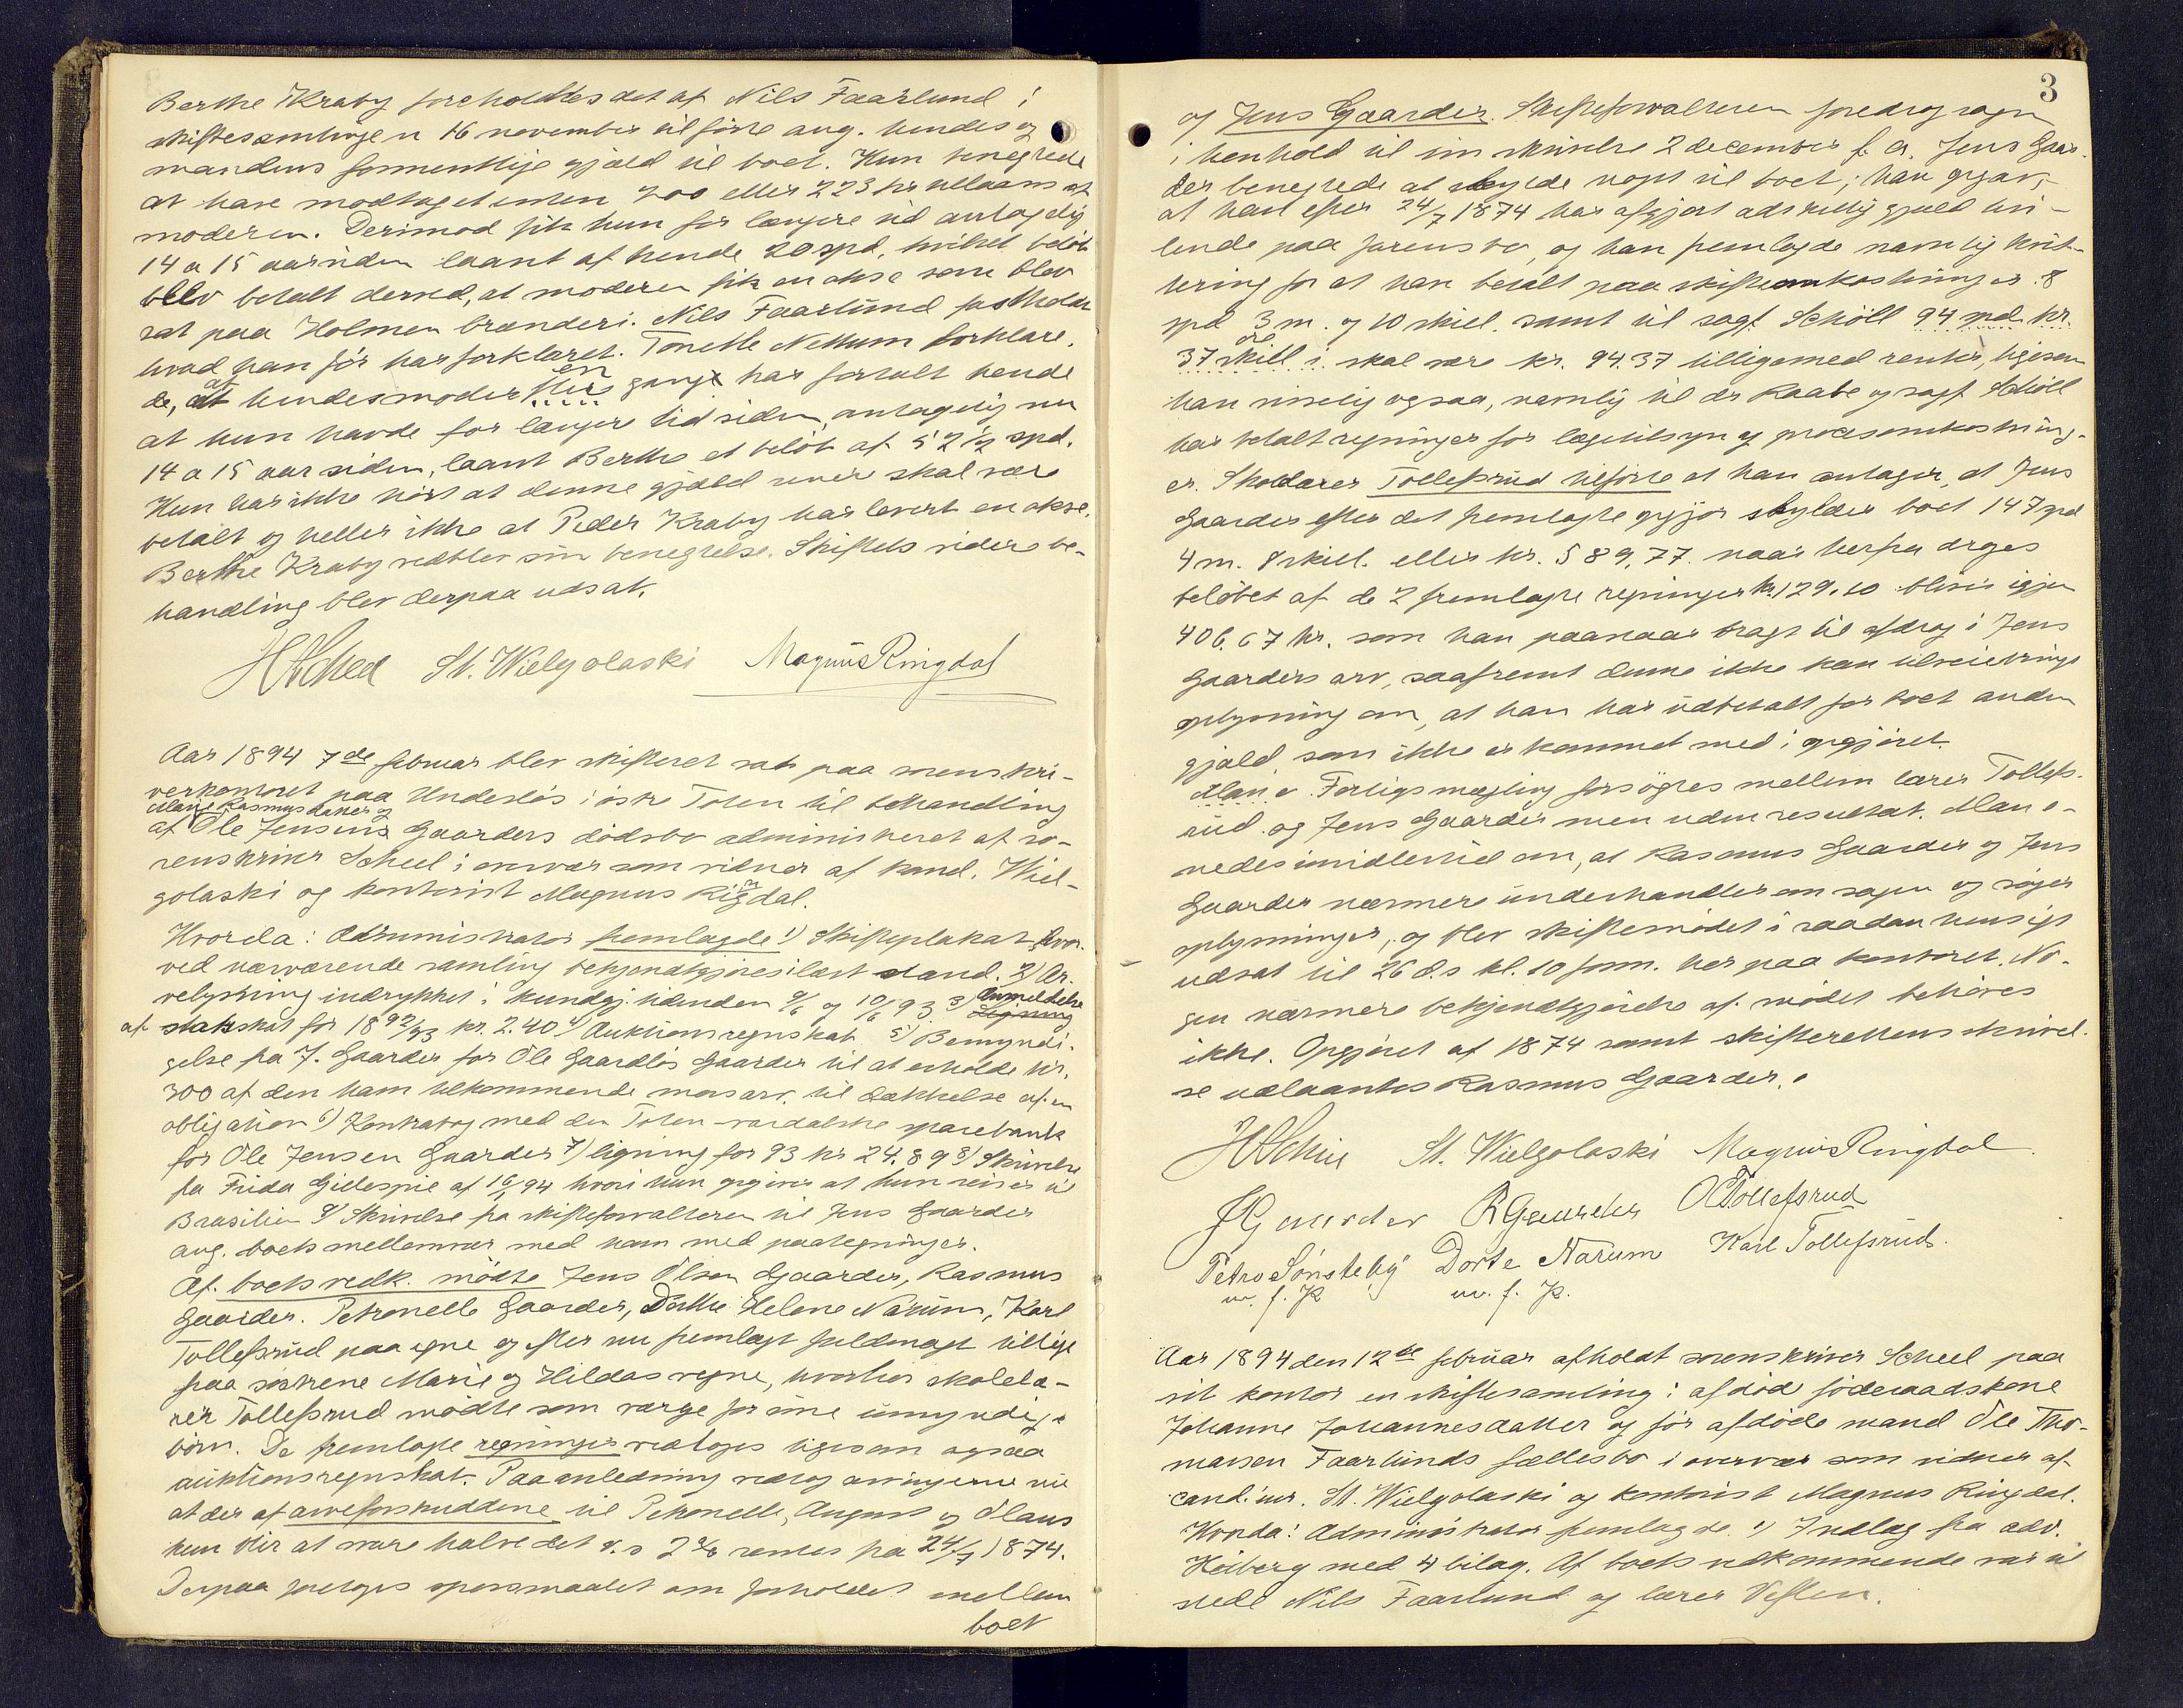 Berthe Kraby foreholdtes det af Nils Faarlund i
skiftesamlingen 16 november tilførte ang. hendes og
mandens formentlige gjæld til boet. Hun benegtede
at have modtaget enten 200 eller 223 kr tillaans af
moderen. Derimod fik hun for længere tid antagelig
14 a 15 aar siden laant af hende 20 spd, hvilket beløb
blev betalt derved, at moderen fik en okse som blev
sat paa Holmen brænderi. Nils Faarlund fastholdt
hvad han før har forklaret. Tonette Nettum forklare,
de, at hendes moder flere en gang har fortalt hende
at hun havde for længere tid siden, antagelig nu
14 a 15 aar siden, laant Berthe et beløb af 52 ½ spd.
Hun har ikke hørt at denne gjæld senere skal være
betalt og heller ikke at Peder Kraby har levert en okse.
Berthe Kraby vedblev sin benegtelse. Skiftets videre be-
handling blev derpaa udsat.
H Scheel St. Wielgolaski Magnus Ringdal
Aar 1894 7de februar blev skifteret sat paa sorenskri-
verkontoret paa Undeslös i östre Toten til behandling
Marie Rasmusdatter og
af Ole Jensens Gaarders dödsbo administreret af so-
renskriver Scheel i overvær som vidner af kand. Wiel-
golaski og kontorist Magnus Ringdal.
Hvorda: Administrator fremlagde 1) Skifteplakat, hvor-
ved nærværende samling bekjendtgjöres i læst stand. 2) Ar-
velysning indrykket i kundgj. tidenden 9/6 og 10/6 93. 3) Ligning Anmeldelse
af statsskat for 1892/93 kr. 2.40 4) Auktionsregnskab 5) Bemyndi-
gelse fra J. Gaarder for Ole Gaardlös Gaarder til at erholde kr.
300 af den ham tilkommende morsarv. til dækkelse af en
obligation 6) Kontrabog med den Toten-vardalske sparebank
for Ole Jensen Gaarder 7) ligning for 93 kr 24.89 8) Skrivelse
fra Frida Gillespie af 16/1 94 hvori hun opgiver at hun reiser til
Brasilien 9) Skrivelse fra skifteforvalteren til Jens Gaarder
ang. boets mellemvær med ham med paategninger.
Af boets vedk. mödte Jens Olsen Gaarder, Rasmus
Gaarder. Petronelle Gaarder, Dorthe Helene Narum, Karl
Tollefsrud paa egne og efter nu fremlagt fuldmagt tillige
paa söstrene Marie og Hildas vegne, hvorhos skolelæ-
rer Tollefsrud mödte som værge for sine umyndige
börn. De fremlagte regninger vedtoges ligesom ogsaa
auktionsregnskab. Paa anledning vedtog arvingerne nu
at der af arveforskuddene til Petronelle, August og Olaus
kun blir at svare halvedet d.s 2% renter fra 24/7 1874.
Derpaa foretoges spørsmaalet om forholdet mellem
boet
3
og Jens Gaarder. Skifteforvalteren foredrog sagen
i henhold til sin skrivelse 2 december f. a. Jens Gaar-
der benegtede at skylde noget til boet; han opgav,
at han efter 24/7 1874 har afgjort adskillig gjæld hvi-
lende paa farens bo, og han fremlagde namlig kvit-
tering for at han betalt paa skifteomkostninger 8
spd 3 m. og 10 skill. samt til sagf. Schöll 94 spd. kr.
37 skill öre i. skal være kr. 94.37 tilligemed renter, ligesom
han rimelig ogsaa, namlig til dr Raabe og sagf. Schöll
har betalt regninger for lægetilsyn og procesomkostning-
er. Skolelærer Tollefsrud tilförte at han antager, at Jens
Gaarder efter det fremlagte opgjör skylder boet 147 spd
4 m. 8 skill. eller kr. 589,77. naar herfra drages
beløbet af de 2 fremlagte regninger kr. 129.10 blives igjen
406.67 kr. som han paanaar bragt til afdrag i Jens
Gaarders arv, saafremt denne ikke kan tilveiebringe
oplysning om, at han har udbetalt for boet anden
gjæld som ikke er kommet med i opgjöret.
Man e. Forligsmægling forsögtes mellem lærer Tollefs-
rud og Jens Gaarder men uden resultat. Man e-
nedes imidlertid om, at Rasmus Gaarder og Jens
Gaarder nærmere underhandler om sagen og söger
oplysninger, og blev skiftemødet i saadan hensigt
udsat til 26 d.s kl. 10 form. her paa kontoret. No-
gen nærmere bekjendtgjørelse af mødet behöves
ikke. Opgjöret af 1874 samt skifterettens skrivel-
se udlaantes Rasmus Gaarder.
H Scheel St. Wielgolaski Magnus Ringdal.
J Gaarder R Gaarder O Tollefsrud
Petro Sönsteby Dorte Narum Karl Tollefsrud.
m. f. P. m. f. P.
Aar 1894 den 12te februar afholdt sorenskriver Scheel paa
sit kontor en skiftesamling i afdöd föderaadskone
Johanne Johannesdatter og för afdöde mand Ole Tho-
masen Faarlunds fællesbo i overvær som vidner af
cand. jur. St. Wielgolaski og kontorist Magnus Ringdal.
Hvorda: Administrator fremlagde 1) Indlæg fra adv.
Heiberg med 4 bilag. Af boets vedkommende var til
stede Nils Faarlund og lærer Veflen.